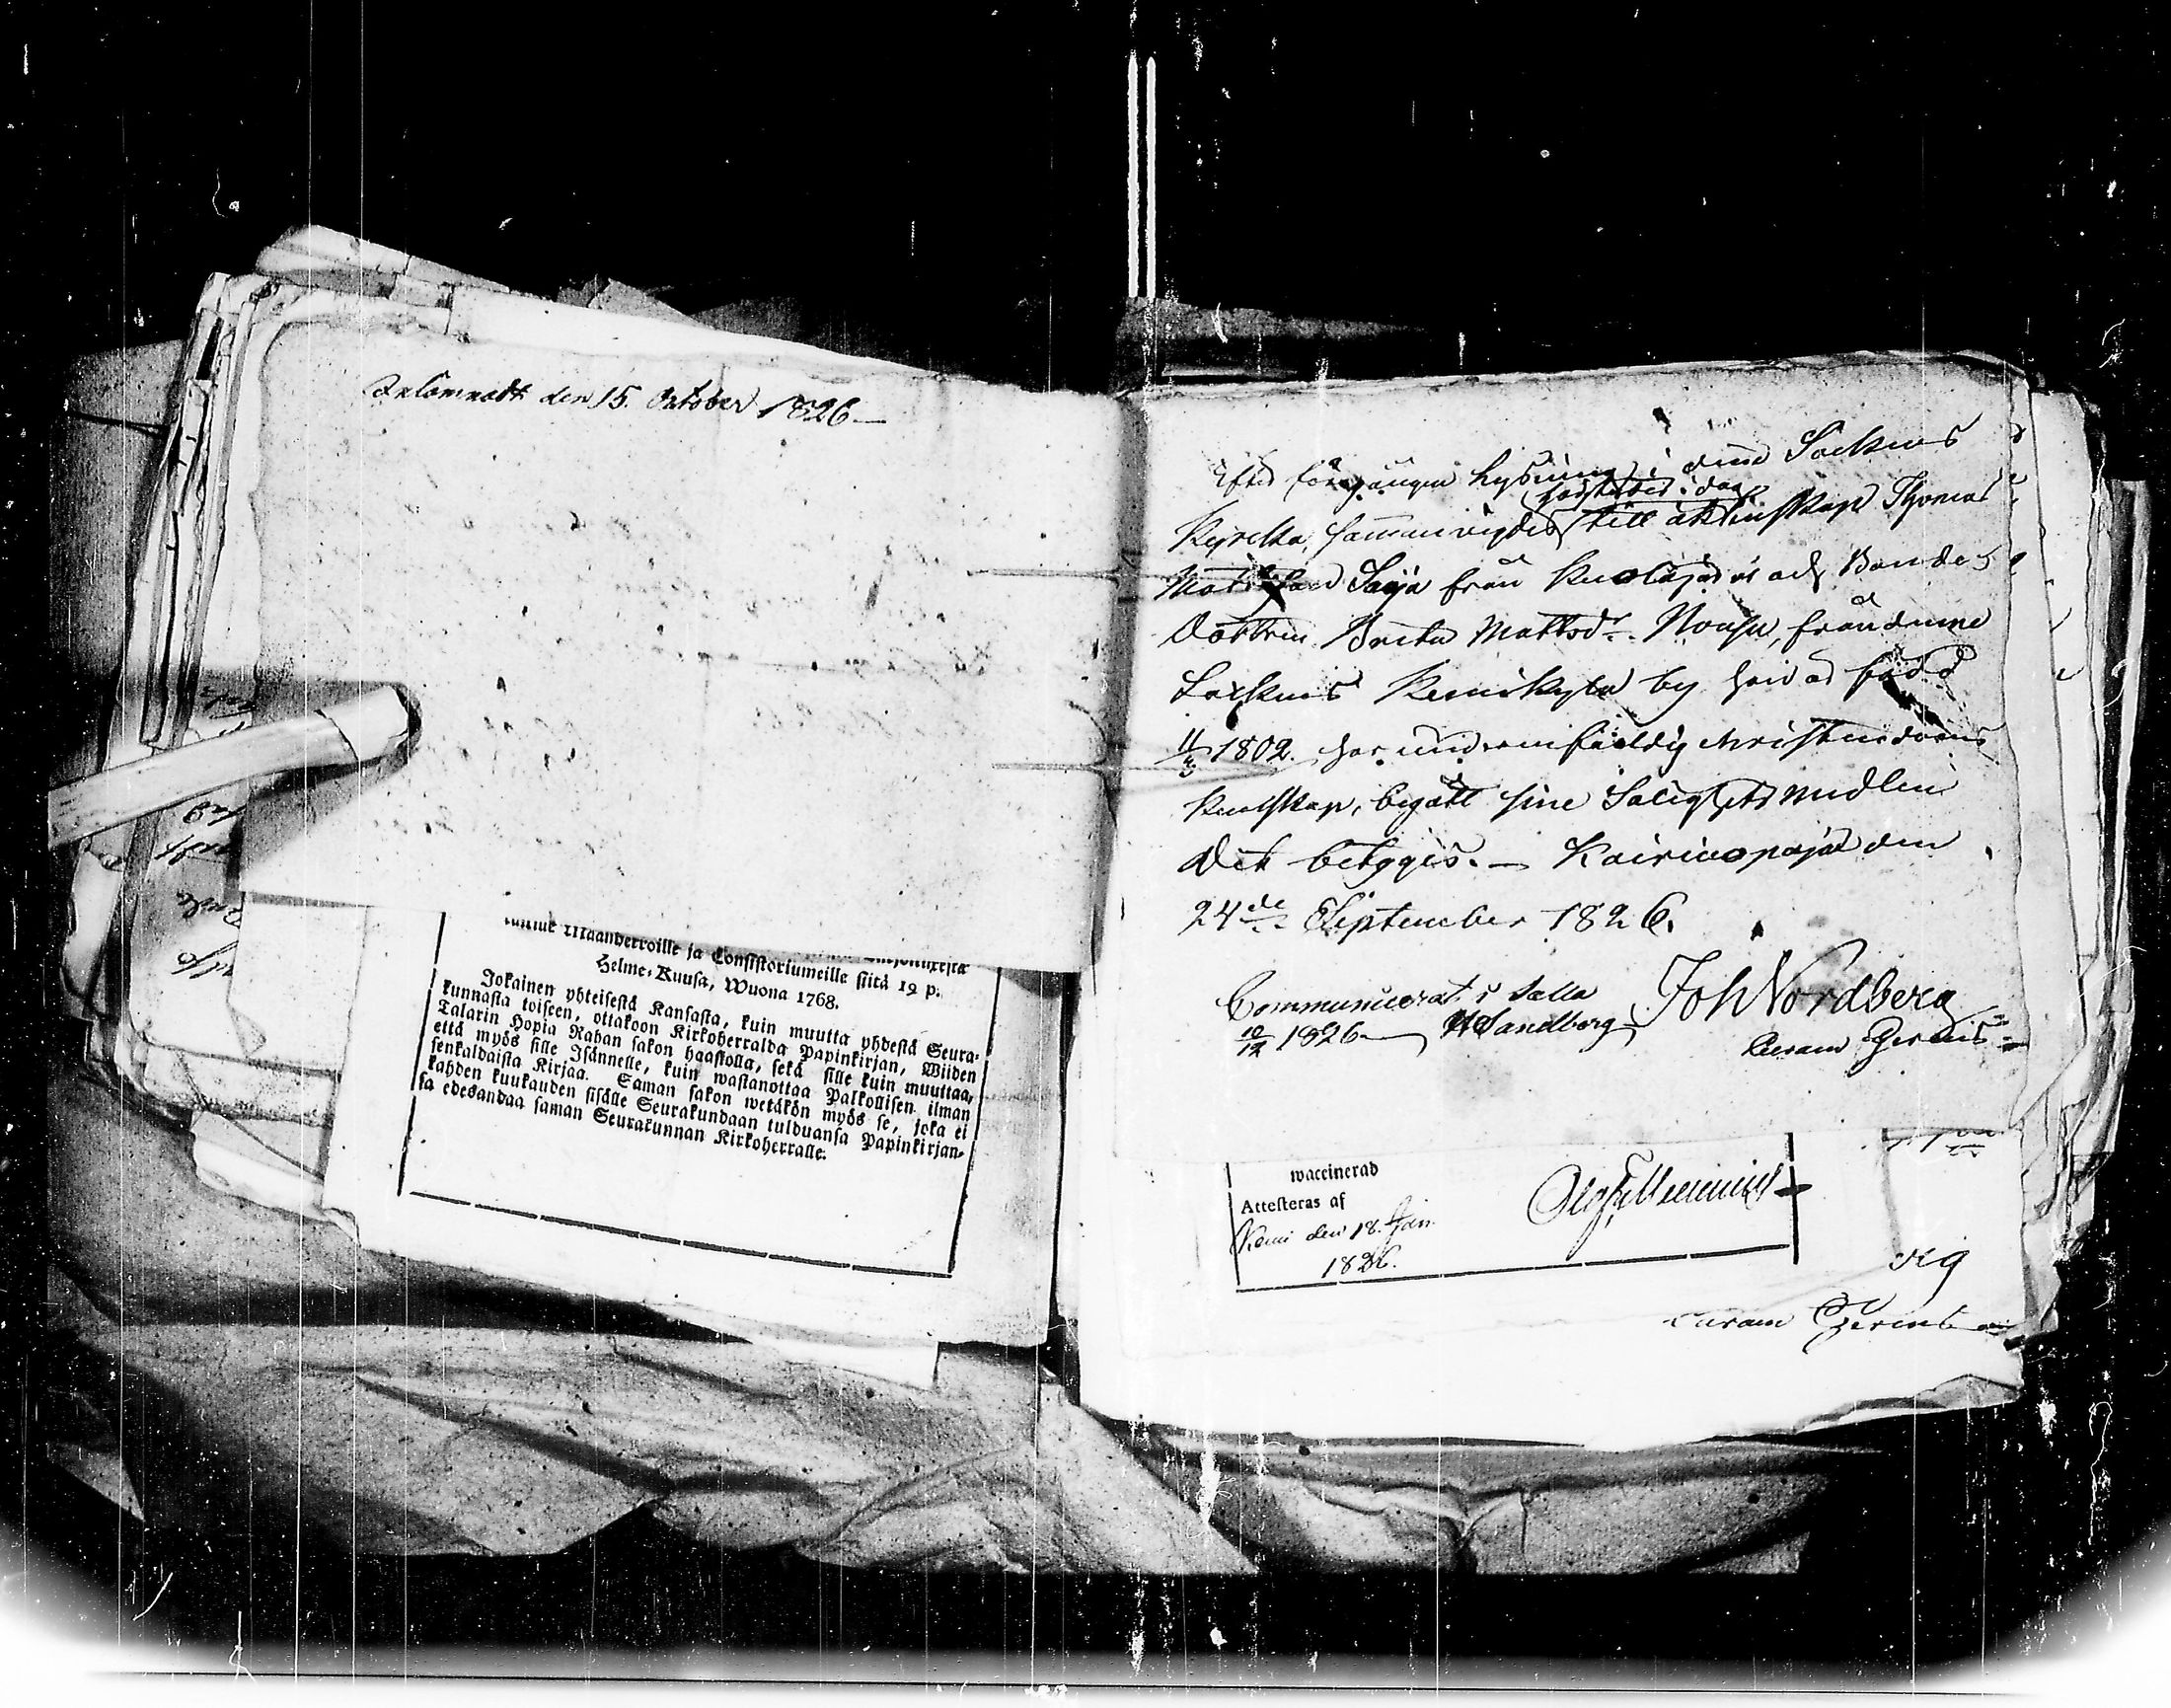 Inlämnadt den 15. October 1826
Maanherroille ja Consistoriumeille siitä 19 p.
Helme-Kuusa, Wuona 1768.
Jokainen yhteisestä Kansasta, kuin muutta yhdestä Seura-
kunnasta toiseen, ottakoon Kirkoherralda Papinkirjan, Wiiden
Talarin Hopia Rahan sakon haastolla, sekä sille kuin muuttaa,
että myös sille Isännelle, kuin wastanottaa Palkollisen ilman
senkaldaista Kirjaa. Saman sakon wetäkön myös se, joka ei
kahden kuukauden sisälle Seurakundaan tulduansa Papinkirjan-
sa edesandaa saman Seurakunnan Kirkoherralle.
Efter föregången lysning i denne Sockens
i dag
Kyrka, sammanvigdes till äktenskap Thomas
Saija från Kuolajärvi och Bonde
Dottren Brita Mattsdr. från denne
Sockens Kemikylä by hvilcken född
11/3 1802. har enfaldig christendoms
kunskap, begått sine Salighets medlen
Det betygas. — Kairivopaja den
24de September 1826.
Joh Nordberg
Communicerat i Salla
10/12 1826 — HSandberg
Curam Gerens
waccinerad
Attesteras af
Kemi den 18. Jan.
1826.
Curam Gerens